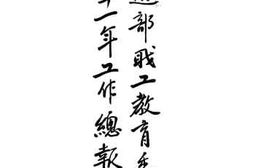 部職工教育
一年工作總報